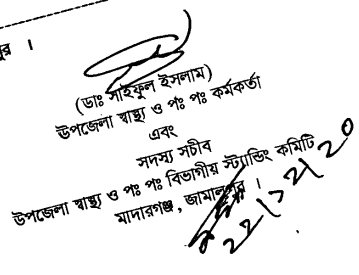 পুর ।
(ডাঃ সাইফুল ইসলাম)
উপজেলা স্বাস্থ্য ও পঃ পঃ কর্মকর্তা
এবং
সদস্য সচীব
উপজেলা স্বাস্থ্য ও পঃ পঃ বিভাগীয় স্ট্যান্ডিং কমিটি
মাদারগঞ্জ, জামালপুর ।